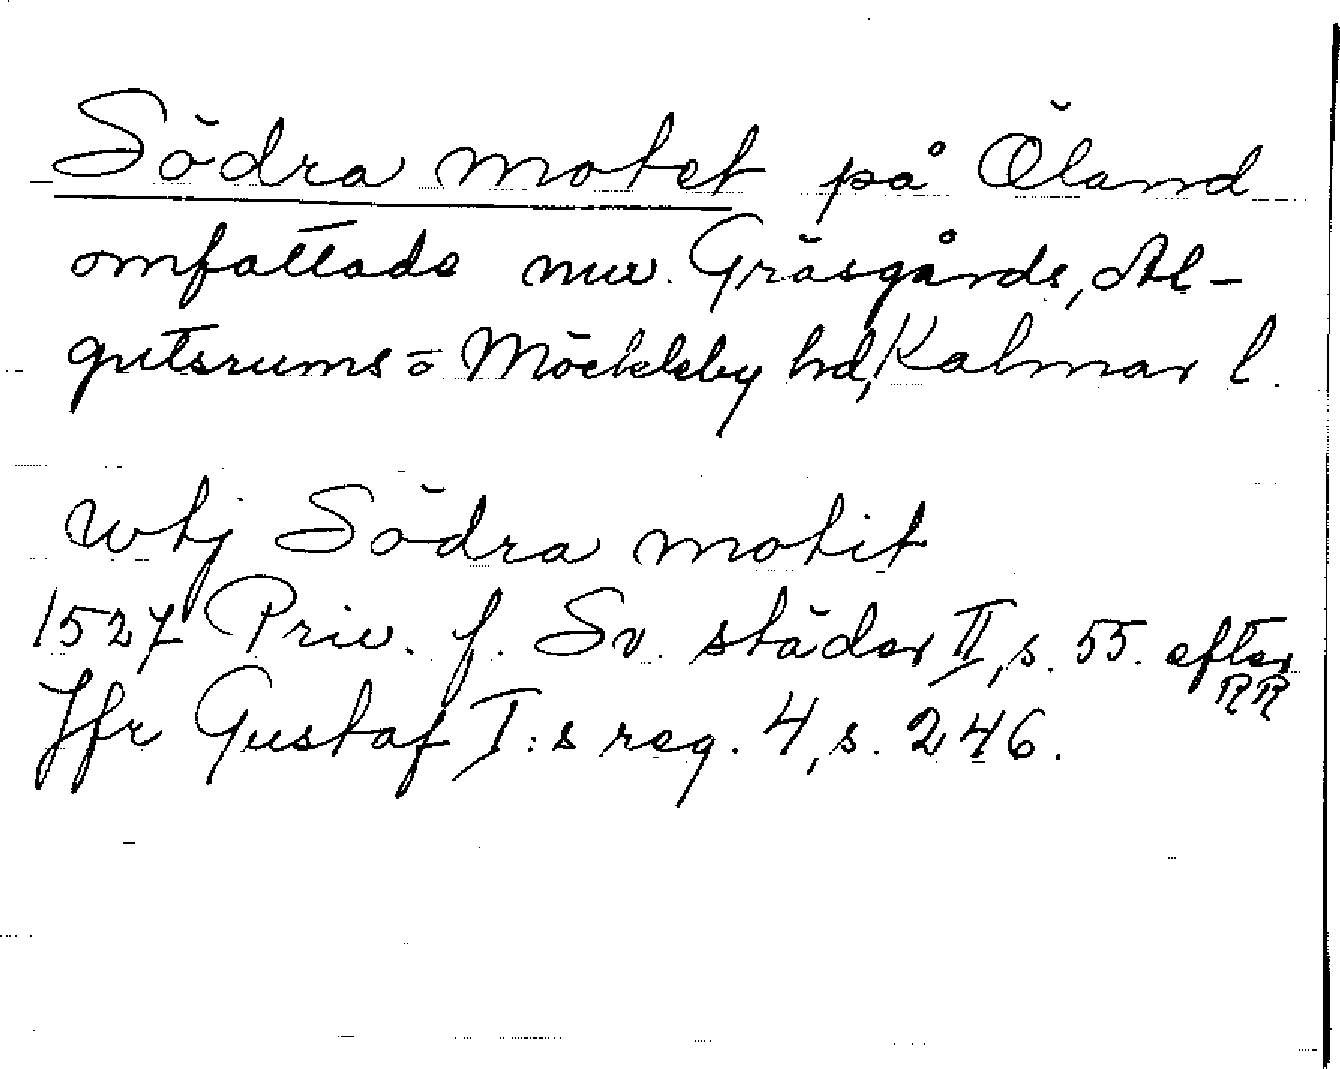 Södra motet på Öland
omfattade nuv. Gräsgårds, Al-
gutsrums o Möckleby hd, Kalmar l.
wtj Södra motit
1527 Priv. f. Sv. städer II, s. 55. efter
RR
Jfr Gustaf I:s reg. 4, s. 246.